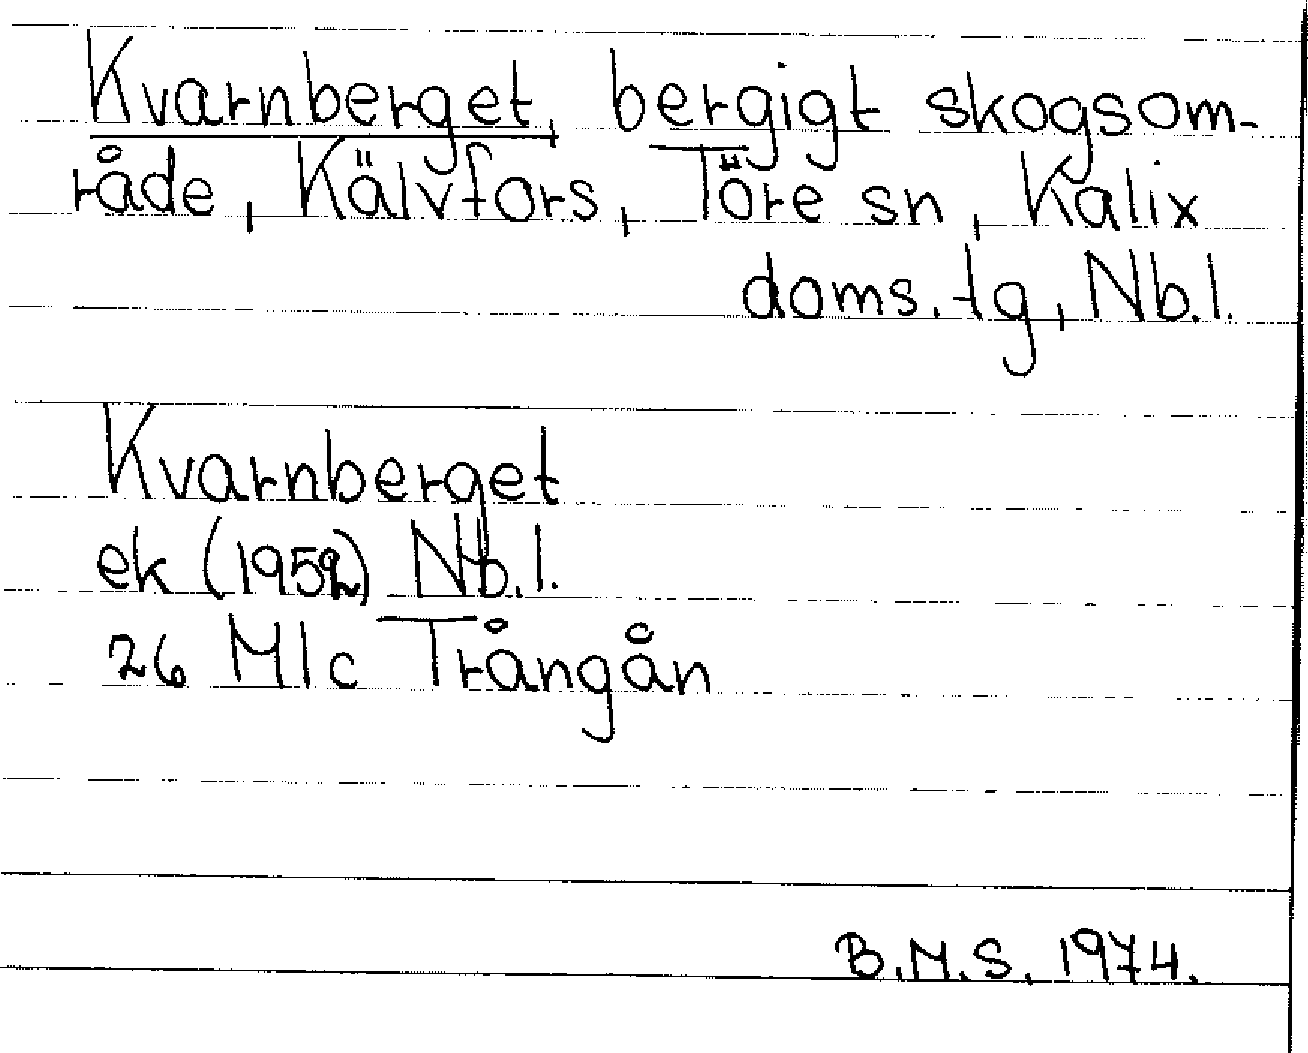 Kvarnberget, bergigt skogsom-
råde, Kälvfors, Töre sn, Kalix
doms. tg, Nb.l.
Kvarnberget
ek (1952) Nb.l.
26 Mlc Trångån
B.M.S. 1974.